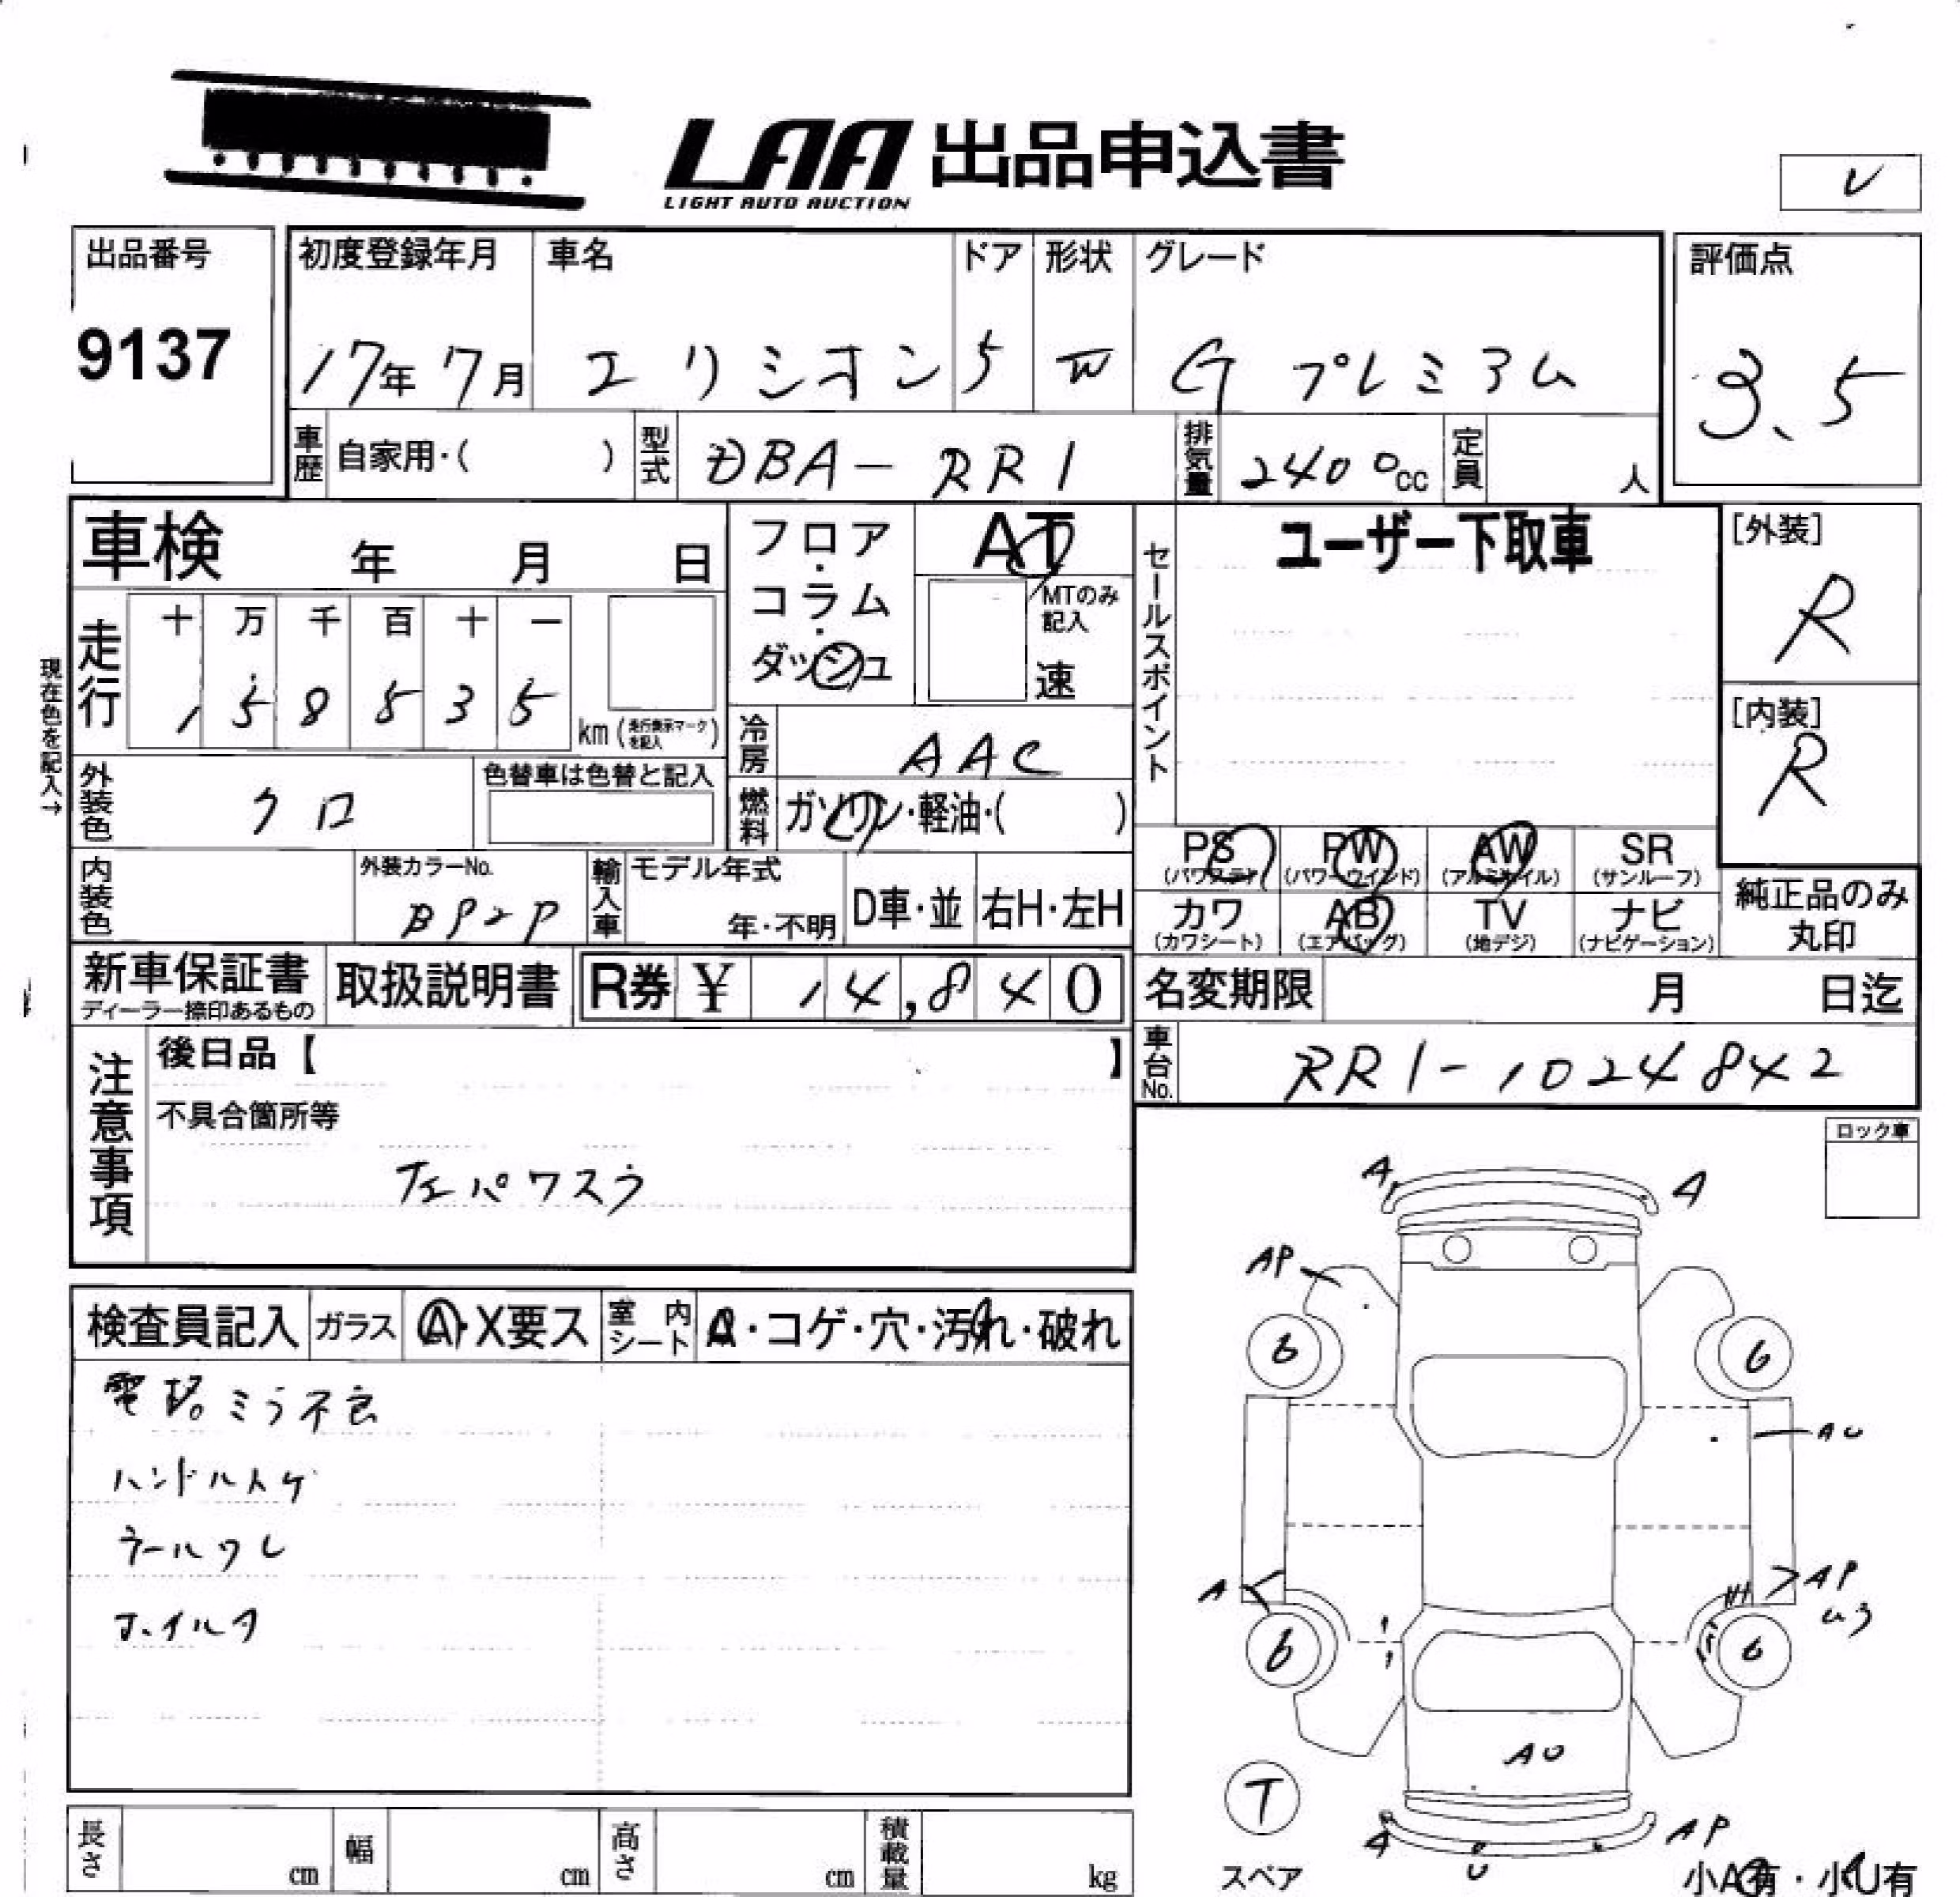 LAA 出品申込書
LIGHT AUTO AUCTION
レ
出品番号
9137
初度登録年月 車名 ドア 形状 グレード
17年 7月 エリシオン 5 W G プレミアム
評価点
3.5
車歴 自家用・( ) 型式 DBA-RR1 排気量 2400cc 定員 人
車検 年 月 日
フロア・コラム・ダッシュ
AT
MTのみ記入
速
セールスポイント
ユーザー下取車
[外装]
R
[内装]
R
現在色を記入→
走行
十 万 千 百 十 一
1 5 8 5 3 5
km (走行表示マークを記入)
冷房 AAC
外装色 クロ
色替車は色替と記入
燃料 ガソリン・軽油・( )
内装色
外装カラーNo.
BP2P
輸入車 モデル年式
年・不明
D車・並 右H・左H
PS PW AW SR
(パワステ) (パワーウインド) (アルミホイル) (サンルーフ)
カワ AB TV ナビ
(カワシート) (エアバッグ) (地デジ) (ナビゲーション)
純正品のみ
丸印
新車保証書
ディーラー捺印あるもの
取扱説明書
R券 ¥ 14,840
名変期限 月 日迄
車台No. RR1-1024842
注意事項
後日品【 】
不具合箇所等
左パワスラ
ロック車
検査員記入 ガラス A・X要ス 室内シート ・コゲ・穴・汚れ・破れ
電格ミラ不良
ハンドルスゲ
ラールワレ
ホイルA
A
A
AP
6
6
AU
A
AP
U3
6
6
AU
T
スペア
A
U
AP
小A有・小U有
長さ cm 幅 cm 高さ cm 積載量 kg